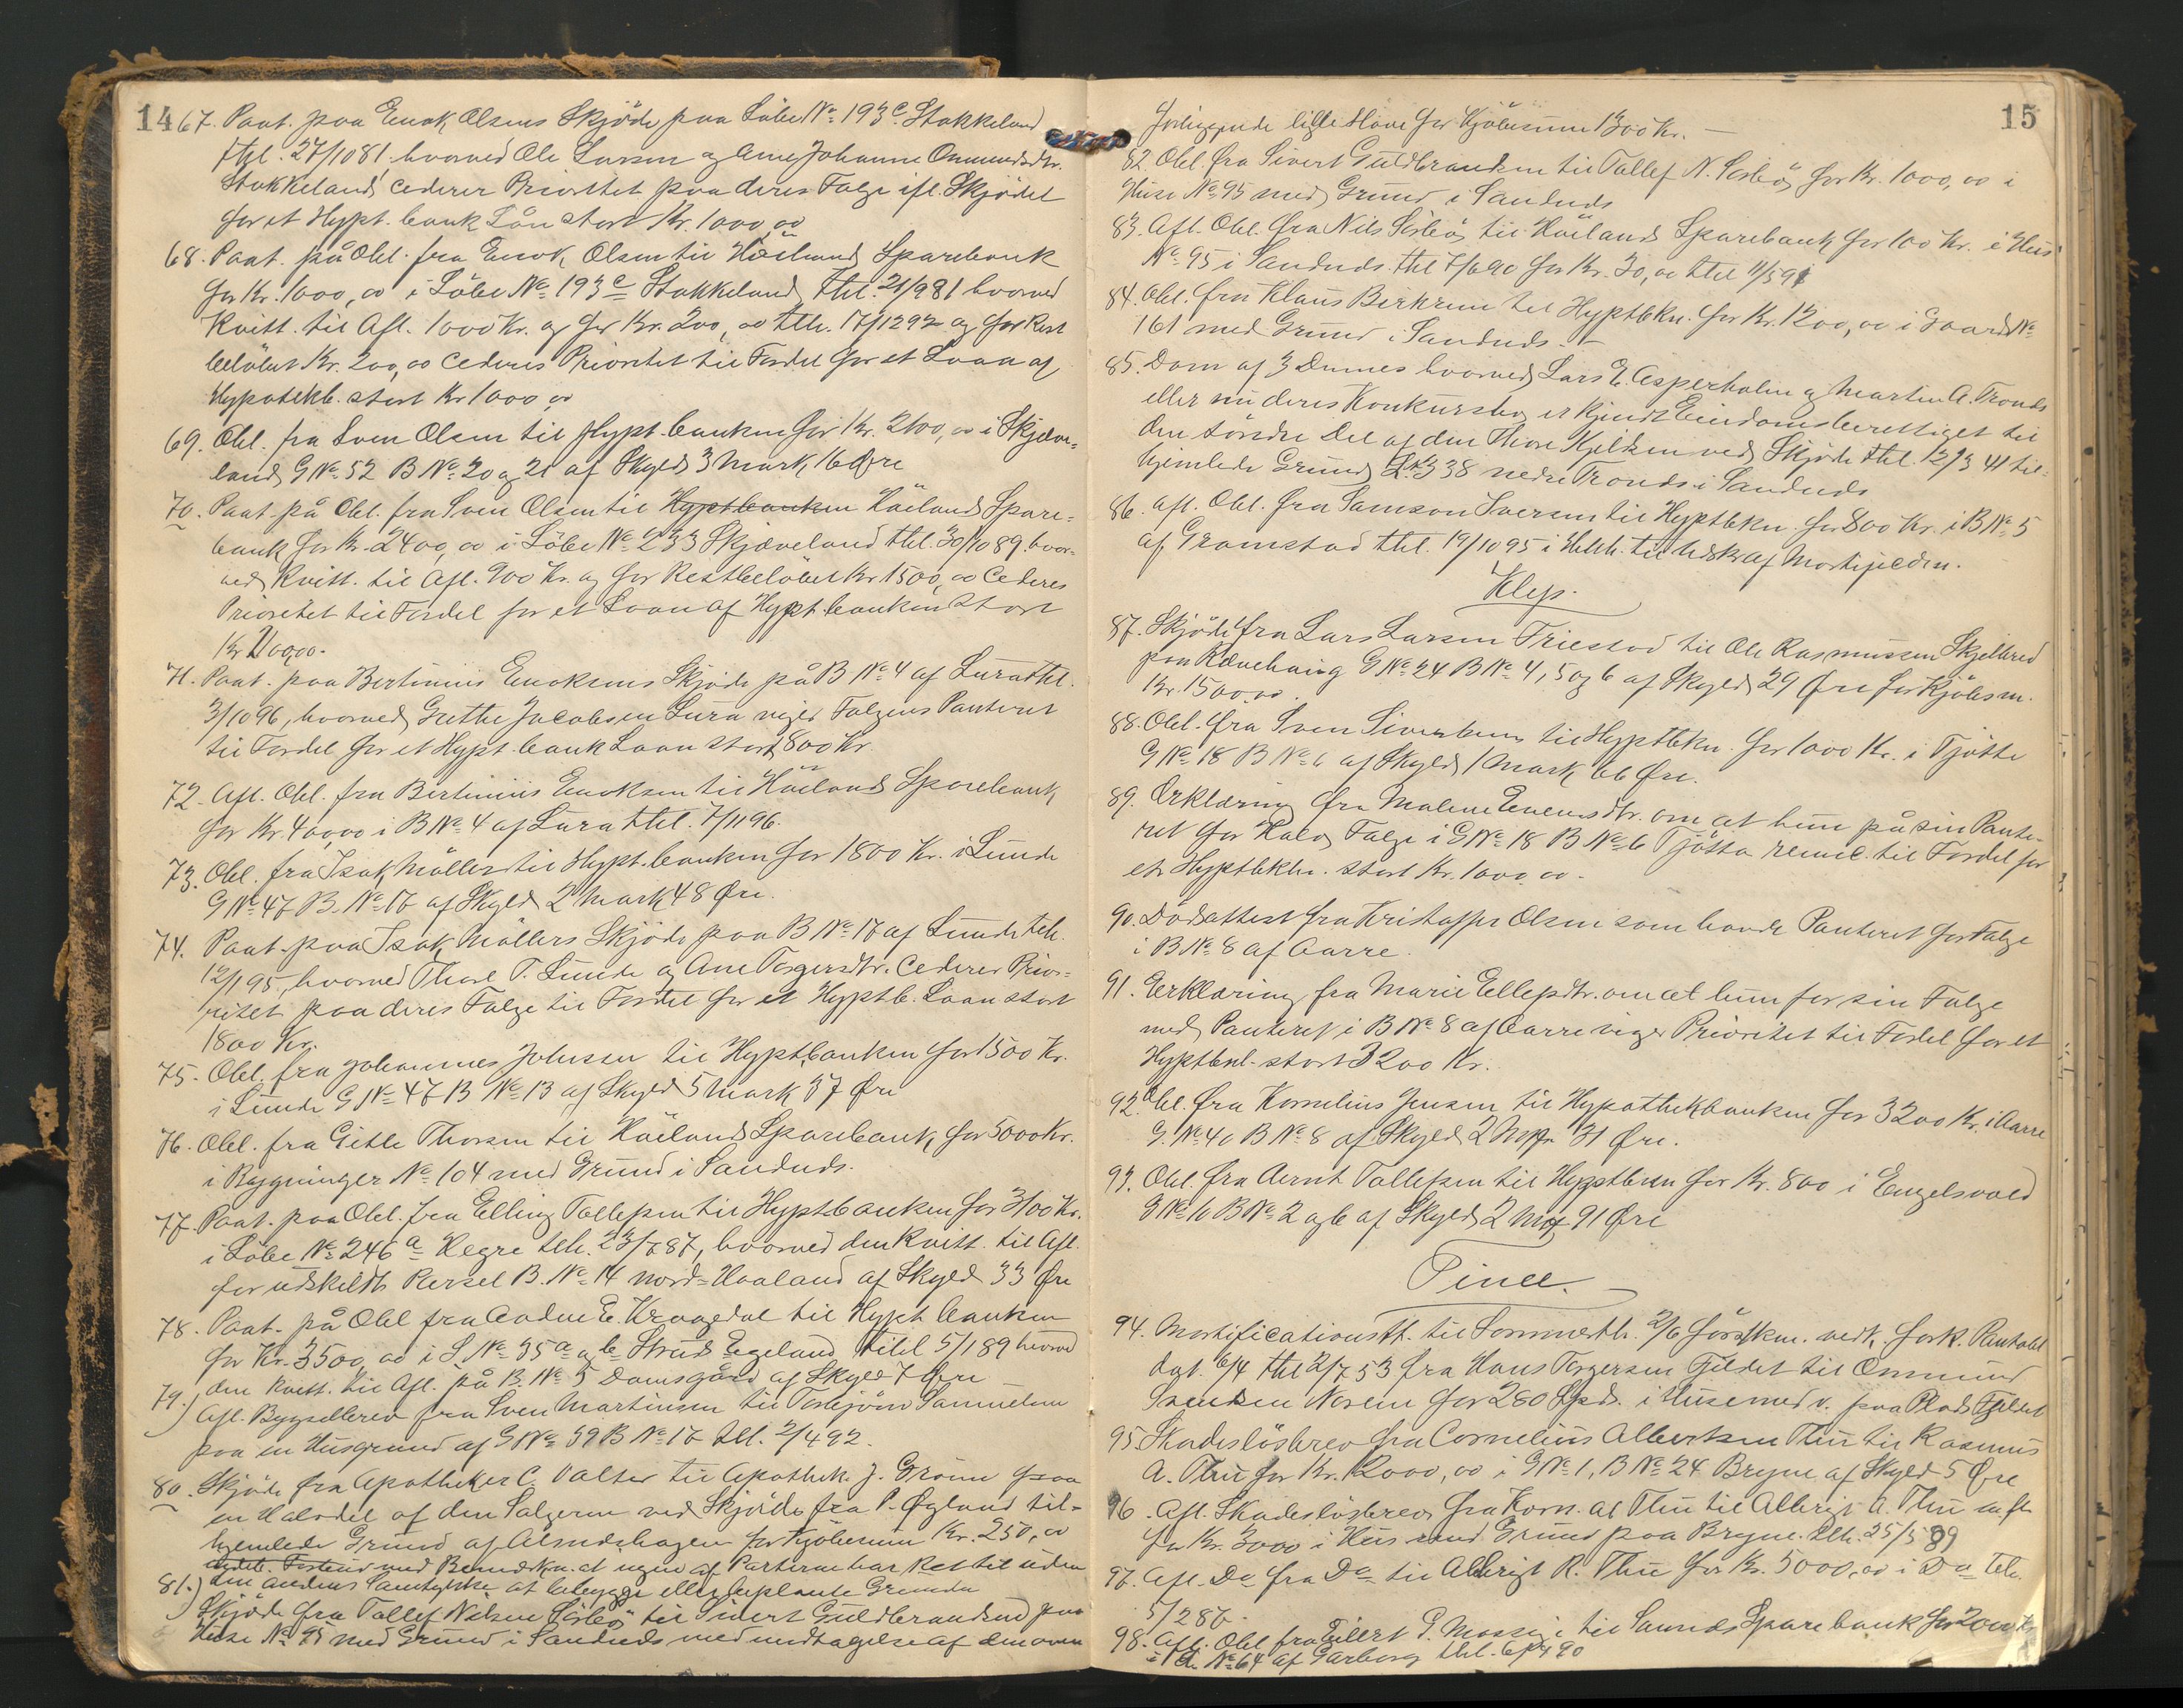 14
67. Paat. paa Enok Olsens Skjøde paa Løbe No 193c Stokkeland
thl. 27/10 81 hvorved Ole Larsen og Ane Johanne Ommundsdtr.
Stokkeland cederer Prioritet paa deres Folge ifl. Skjødet
for et Hypt. bank Lån stort Kr. 1000,00
68. Paat. på Obl. fra Enok Olsen til Höilands Sparebank
for Kr. 1000,00 i Løbe No 193c Stokkeland thl. 21/9 81 hvorved
Kvitt. til Afl. 1000 Kr. og for Kr. 200,00 thl. 17/12 92 og for Rest
beløbet Kr. 200,00 cederes Prioritet til Fordel for et Laan af
Hypotekb. stort Kr 1000,00
69. Obl. fra Sven Olsen til Hypt. banken for Kr. 2100,00 i Skjæve-
land G No 52 B No 20 og 21 af Skyld 3 Mark 16 Øre
70. Paat. på Obl. fra Sven Olsen til Hyptbanken Höilands Spare-
bank for Kr. 2400,00 i Løbe No 233 Skjæveland thl. 30/10 89 hvor-
ved Kvitt. til Afl. 900 Kr. og for Restbeløbet Kr 1500,00 cederes
Prioritet til Fordel for et Laan af Hypt. banken stort
Kr 2100,00.
71. Paat. paa Bertinius Enoksens Skjøde på B No 4 af Lura thl.
3/10 96, hvorved Grethe Jacobsen Lura viger Folgens Panteret
til Fordel for et Hypt. bank Laan stort 800 Kr
72. Afl. Obl. fra Bertinius Enoksen til Höilands Sparebank
for Kr. 400,00 i B No 4 af Lura thl. 7/11 96.
73. Obl. fra Isak Möller til Hypt. banken for 1800 Kr. i Lunde
G No 47 B. No 17 af Skyld 2 Mark 48 Øre.
74. Paat. paa Isak Möllers Skjøde paa B No 17 af Lunde thl.
12/1 95, hvorved Thore T. Lunde og Ane Torgersdtr. cederer Prior-
itet paa deres Folge til Fordel for et Hyptb. Laan stort
1800 Kr.
75. Obl. fra Johannes Johnsen til Hyptbanken for 1500 Kr.
i Lunde G No 47 B No 13 af Skyld 5 Mark 37 Øre
76. Obl. fra Gitle Thorsen til Höilands Sparebank for 5000 Kr.
i Bygninger No 104 med Grund i Sandnds.
77. Paat. paa Obl. fra Elling Tollefsen til Hyptbanken for 3100 Kr.
i Løbe No 246a Hegre thl. 23/7 87, hvorved den Kvitt. til Afl.
for udskildt Parsel B. No 14 Nord-Haaland af Skyld 33 Øre
78. Paat. på Obl fra Aadne E. Kragedal til Hypt banken
for Kr. 3500,00 i L No 35a og b Struds Egeland thl 5/1 89 hvorved
den kvitt. til Afl. på B. No 5 Damsgård af Skyld 7 Øre
79. Afl. Bygselbrev fra Sven Martinsen til Torbjörn Samuelsen
paa en Husgrund af G No 59 B No 17 thl. 2/4 92.
80. Skjøde fra Apotheker C. Valter til Apothek. J. Grönn paa
en Halvdel af den Sælgeren ved Skjøde fra P. Øgland til-
hjemlede Grund af Almedshagen for Kjöbesum Kr. 250,00
med Bemerkn. at ingen af Parterne har Ret til uden
den andens Samtykke at bebygge eller beplante Grunden
81. Skjøde fra Tollef Nilsen Sörbö til Sivert Guldbrandsen paa
Huse No 95 med Grund i Sandnds med undtagelse af den oven
15
forliggende lille Have for Kjöbesum 1300 Kr. —
82. Obl. fra Sivert Guldbrandsen til Tollef N. Sörbö for Kr. 1000,00 i
Huse No 95 med Grund i Sandnds
83. Afl. Obl. fra Nils Sörbö til Höilands Sparebank for 100 Kr. i Hus
No 95 i Sandnds. thl 7/6 90 for Kr. 30,00 thl 11/5 91
84. Obl. fra Klaus Birkrem til Hyptbkn. for Kr. 1200,00 i Gaard No
161 med Grund i Sandnds. —
85. Dom af 3 Dmes hvorved Lars E. Asperholm og Martin A. Tronds
eller nu deres Konkursbo er kjendt Eiendomsberettiget til
den søndre Del af den Thore Kjeldsen ved Skjøde thl. 12/3 41 til-
hjemlede Grund L. No 338 nedre Tronds i Sandnds
86. Afl. Obl. fra Samson Iversen til Hyptbkn. for 800 Kr. i B No 5
af Gramstad thl. 19/10 95 i Henh. til Udskr af Mortifieden.
Klep.
87. Skjøde fra Lars Larsen Friestad til Ole Rasmussen Skjelbred
paa Rævehaug G No 24 B No 4, 5 og 6 af Skyld 29 Øre for Kjöbesm.
Kr. 1500,00.
88. Obl. fra Sven Sivertsen til Hyptbkn. for 1000 Kr. i Tjötte
G No 18 B No 6 af Skyld 1 Mark 66 Øre.
89. Erklæring fra Malene Evensdtr. om at hun på sin Pante-
ret for Halv Folge i G No 18 B No 6 Tjötta til Fordel for
et Hyptbkln. stort Kr. 1000,00.
90. Dødsattest fra Kristoffer Olsen som havde Panteret for Folge
i B No 8 af Aarre.
91. Erklæring fra Marie Ellefsdtr. om at hun for sin Folge
med Panteret i B No 8 af Aarre viger Prioritet til Fordel for et
Hyptbnl. stort 3200 Kr.
92. Obl. fra Kornelius Jensen til Hypothekbanken for 3200 Kr. i Aarre
G. No 40 B No 8 af Skyld 2 Mark 31 Øre.
93. Obl. fra Aernt Tollefsen til Hyptbken for Kr. 800 i Engelsvold
G No 10 B No 2 og 6 af Skyld 2 Mark 91 Øre
Time.
94. Mortificationstf. til Sommerth. 2/6 vedk. fork. Pantobl
dgt. 6/4 thl 2/7 53 fra Hans Torgersen Fjeldet til Ommund
Svendsen Norem for 280 Spd. i Huse med v. paa Plads Fjeldet
95. Skadesløsbrev fra Cornelius Albertsen Thu til Rasmus
A. Thu for Kr. 12000,00 i G No 1, B No 24 Bryne af Skyld 5 Øre
96. Afl. Skadesløsbrev fra Korn. Al Thu til Albrigt A. Thu
for Kr. 3000 i Hus med Grund paa Bryne thl. 25/5 89
97. Afl. Do fra Do til Albrigt R. Thu for Kr. 5000,00 i Do thl.
5/2 87.
98. Afl. Obl fra Eilert P. Mossige til Saunds Sparebank for 200 Kr
i L No 64 af Garborg thl. 90